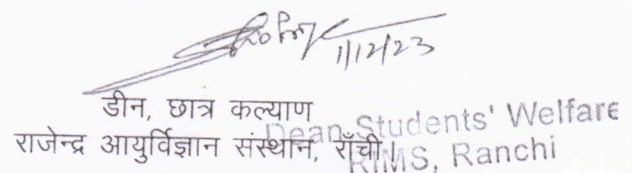 1/12/23
डीन, छात्र कल्याण
राजेन्द्र आयुर्विज्ञान संस्थान, राँची।
Dean Students' Welfare
RIMS, Ranchi